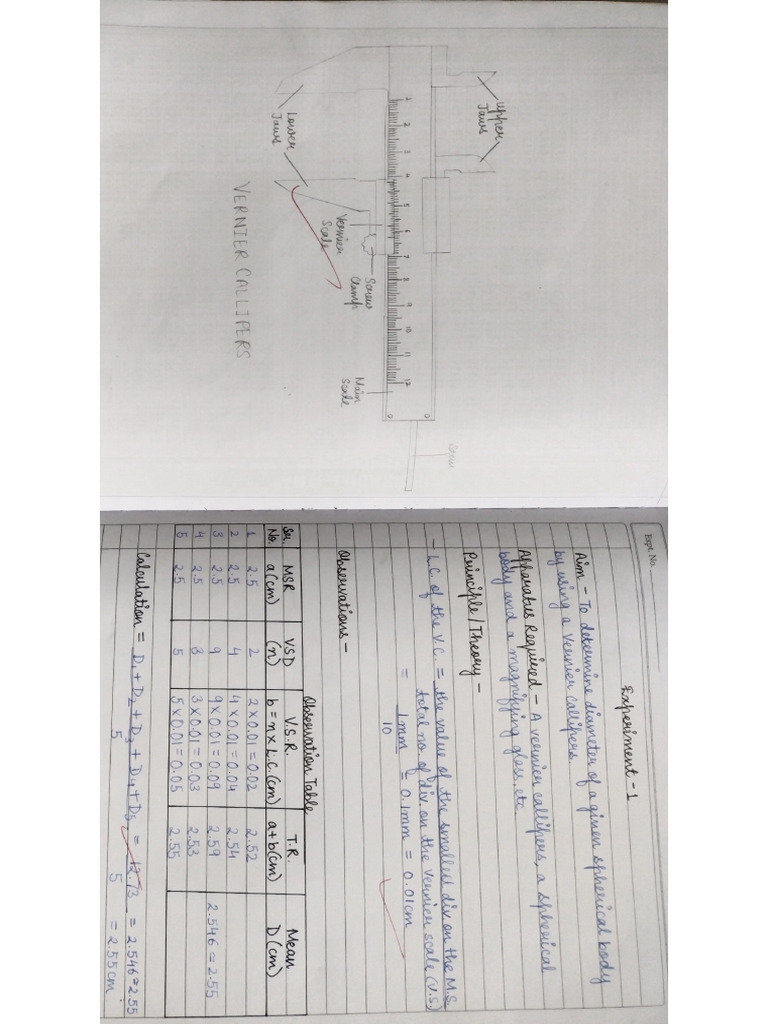 Upper
Jaws
1 2 3 4 5 6 7 8 9 10 11 12
Lower
Jaws
Vernier
Scale
Screw
Clamp
Main
Scale
VERNIER CALLIPERS
Expt. No.
Experiment - 1
Aim - To determine diameter of a given spherical body
by using a Vernier callipers.
Apparatus Required - A vernier callipers, a spherical
body and a magnifying glass, etc
Principle / Theory -
- L.C. of the V.C. = the value of the smallest div on the M.S.
total no. of div. on the Vernier scale (V.S.)
= 1 mm = 0.1mm = 0.01cm
10
Observations -
Observation Table
Ser. No. MSR a (cm) VSD (n) V.S.R. b = n x L.C. (cm) T.R. a+b (cm) Mean D (cm)
1 2.5 2 2 x 0.01 = 0.02 2.52
2 2.5 4 4 x 0.01 = 0.04 2.54
3 2.5 9 9 x 0.01 = 0.09 2.59 2.546 = 2.55
4 2.5 3 3 x 0.01 = 0.03 2.53
5 2.5 5 5 x 0.01 = 0.05 2.55
Calculation = D1 + D2 + D3 + D4 + D5 = 12.73 = 2.546 ≈ 2.55
5 5 = 2.55 cm